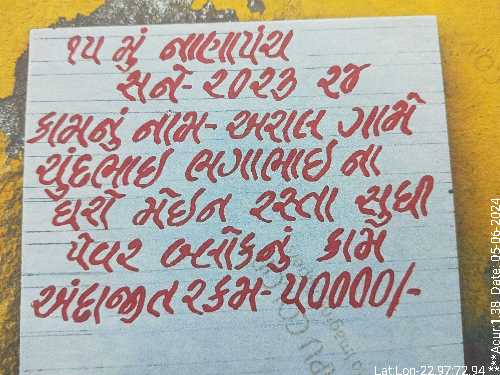 ૧૫ મું નાણાપંચ
સને- ૨૦૨૩ ૨૪
કામનું નામ- અરાલ ગામે
ચુંદભાઇ ભગાભાઇ ના
ઘરો મેઇન રસ્તા સુધી
પેવર બ્લોકનું કામ
અંદાજીત રકમ- ૫૦૦૦૦/-
Lat:Lon-22.97:72.94 ***Acur:1.38 Date: 05-06-2024